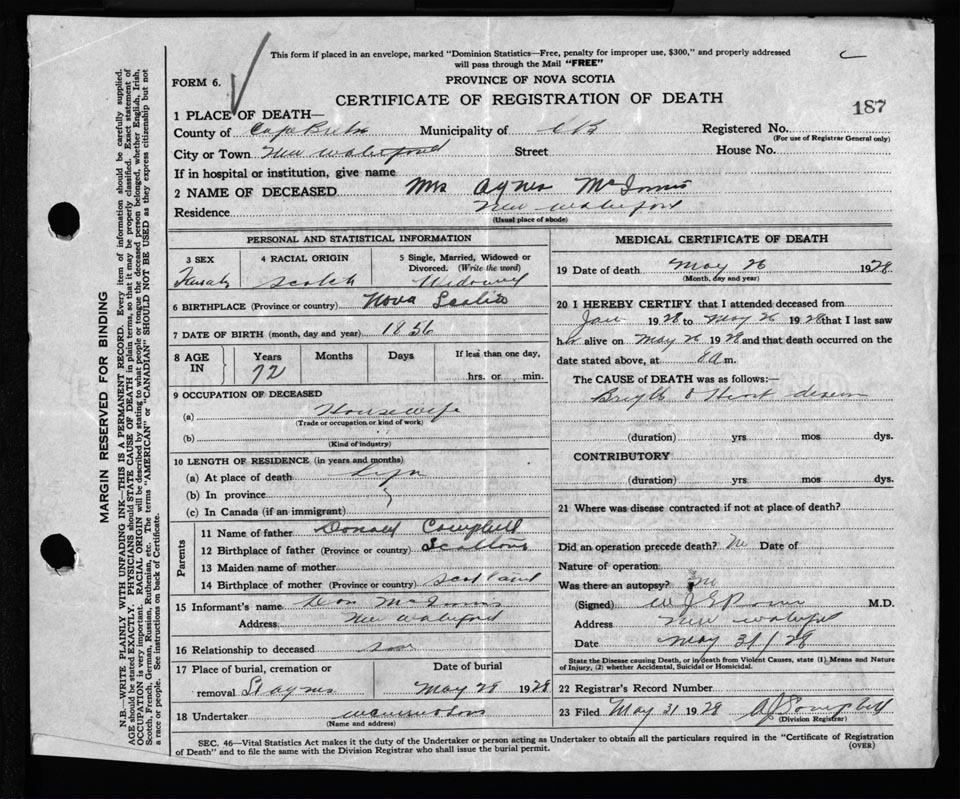 This form if placed in an envelope, marked "Dominion Statistics—Free, penalty for improper use, $300," and properly addressed
will pass through the Mail "FREE"
FORM 6.
PROVINCE OF NOVA SCOTIA
CERTIFICATE OF REGISTRATION OF DEATH
187
1 PLACE OF DEATH—
County of Cape Breton Municipality of C B Registered No.
(For use of Registrar General only)
City or Town New Waterford Street House No.
If in hospital or institution, give name
2 NAME OF DECEASED Mrs Agnes McInnis
Residence New Waterford
(Usual place of abode)
PERSONAL AND STATISTICAL INFORMATION
3 SEX 4 RACIAL ORIGIN 5 Single, Married, Widowed or
Divorced. (Write the word)
Female Scotch Widowed
6 BIRTHPLACE (Province or country) Nova Scotia
7 DATE OF BIRTH (month, day and year) 1856
8 AGE IN Years Months Days If less than one day,
72 hrs. or min.
9 OCCUPATION OF DECEASED
(a) Housewife
(Trade or occupation or kind of work)
(b)
(Kind of industry)
10 LENGTH OF RESIDENCE (in years and months)
(a) At place of death
(b) In province
(c) In Canada (if an immigrant)
Parents
11 Name of father Donald Campbell
12 Birthplace of father (Province or country)
13 Maiden name of mother
14 Birthplace of mother (Province or country) Scotland
15 Informant's name Dan McInnis
Address New Waterford
16 Relationship to deceased son
17 Place of burial, cremation or Date of burial
removal St Agnes May 28 1928
18 Undertaker
(Name and address)
MEDICAL CERTIFICATE OF DEATH
19 Date of death May 26 1928
(Month, day and year)
20 I HEREBY CERTIFY that I attended deceased from
Jan 1928 to May 26 1928 that I last saw
her alive on May 26 1928 and that death occurred on the
date stated above, at 8 a m.
The CAUSE of DEATH was as follows:—
Brights & Heart disease
(duration) yrs mos dys.
CONTRIBUTORY
(duration) yrs. mos. dys.
21 Where was disease contracted if not at place of death?
Did an operation precede death? No Date of
Nature of operation
Was there an autopsy? No
(Signed) M.D.
Address New Waterford
Date May 31/28
State the Disease causing Death, or in death from Violent Causes, state (1) Means and Nature
of Injury, (2) whether Accidental, Suicidal or Homicidal.
22 Registrar's Record Number
23 Filed May 31 1928 A J Campbell
(Division Registrar)
SEC. 46—Vital Statistics Act makes it the duty of the Undertaker or person acting as Undertaker to obtain all the particulars required in the "Certificate of Registration
of Death" and to file the same with the Division Registrar who shall issue the burial permit.
(OVER)
MARGIN RESERVED FOR BINDING
N.B.—WRITE PLAINLY WITH UNFADING INK—THIS IS A PERMANENT RECORD. Every item of information should be carefully supplied.
AGE should be stated EXACTLY. PHYSICIANS should STATE CAUSE OF DEATH in plain terms, so that it may be properly classified. Exact statement of
OCCUPATION is very important. RACIAL ORIGIN will be described by stating to what people or tongue the deceased person belonged, whether English, Irish,
Scotch, French, German, Russian, Ruthenian, etc. The terms "AMERICAN" or "CANADIAN" SHOULD NOT BE USED as they express citizenship but not
a race or people. See instructions on back of Certificate.